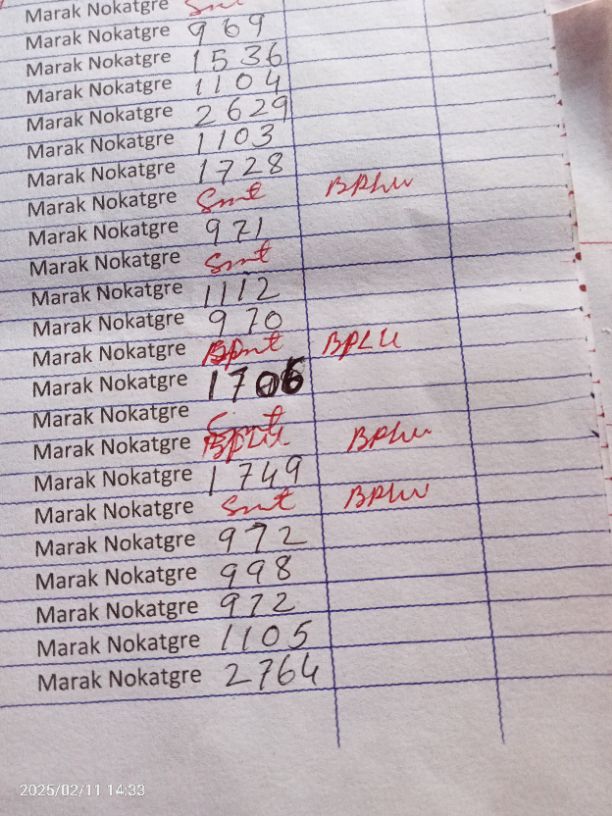 Marak Nokatgre Smt
Marak Nokatgre 969
Marak Nokatgre 1536
Marak Nokatgre 1104
Marak Nokatgre 2629
Marak Nokatgre 1103
Marak Nokatgre 1728
Marak Nokatgre Smt BPLU
Marak Nokatgre 971
Marak Nokatgre Smt
Marak Nokatgre 1112
Marak Nokatgre 970
Marak Nokatgre BPLU
Marak Nokatgre 1706
Marak Nokatgre Smt
Marak Nokatgre BPLU BPLU
Marak Nokatgre 1749
Marak Nokatgre Smt BPLU
Marak Nokatgre 972
Marak Nokatgre 998
Marak Nokatgre 972
Marak Nokatgre 1105
Marak Nokatgre 2764
2025/02/11 14:33